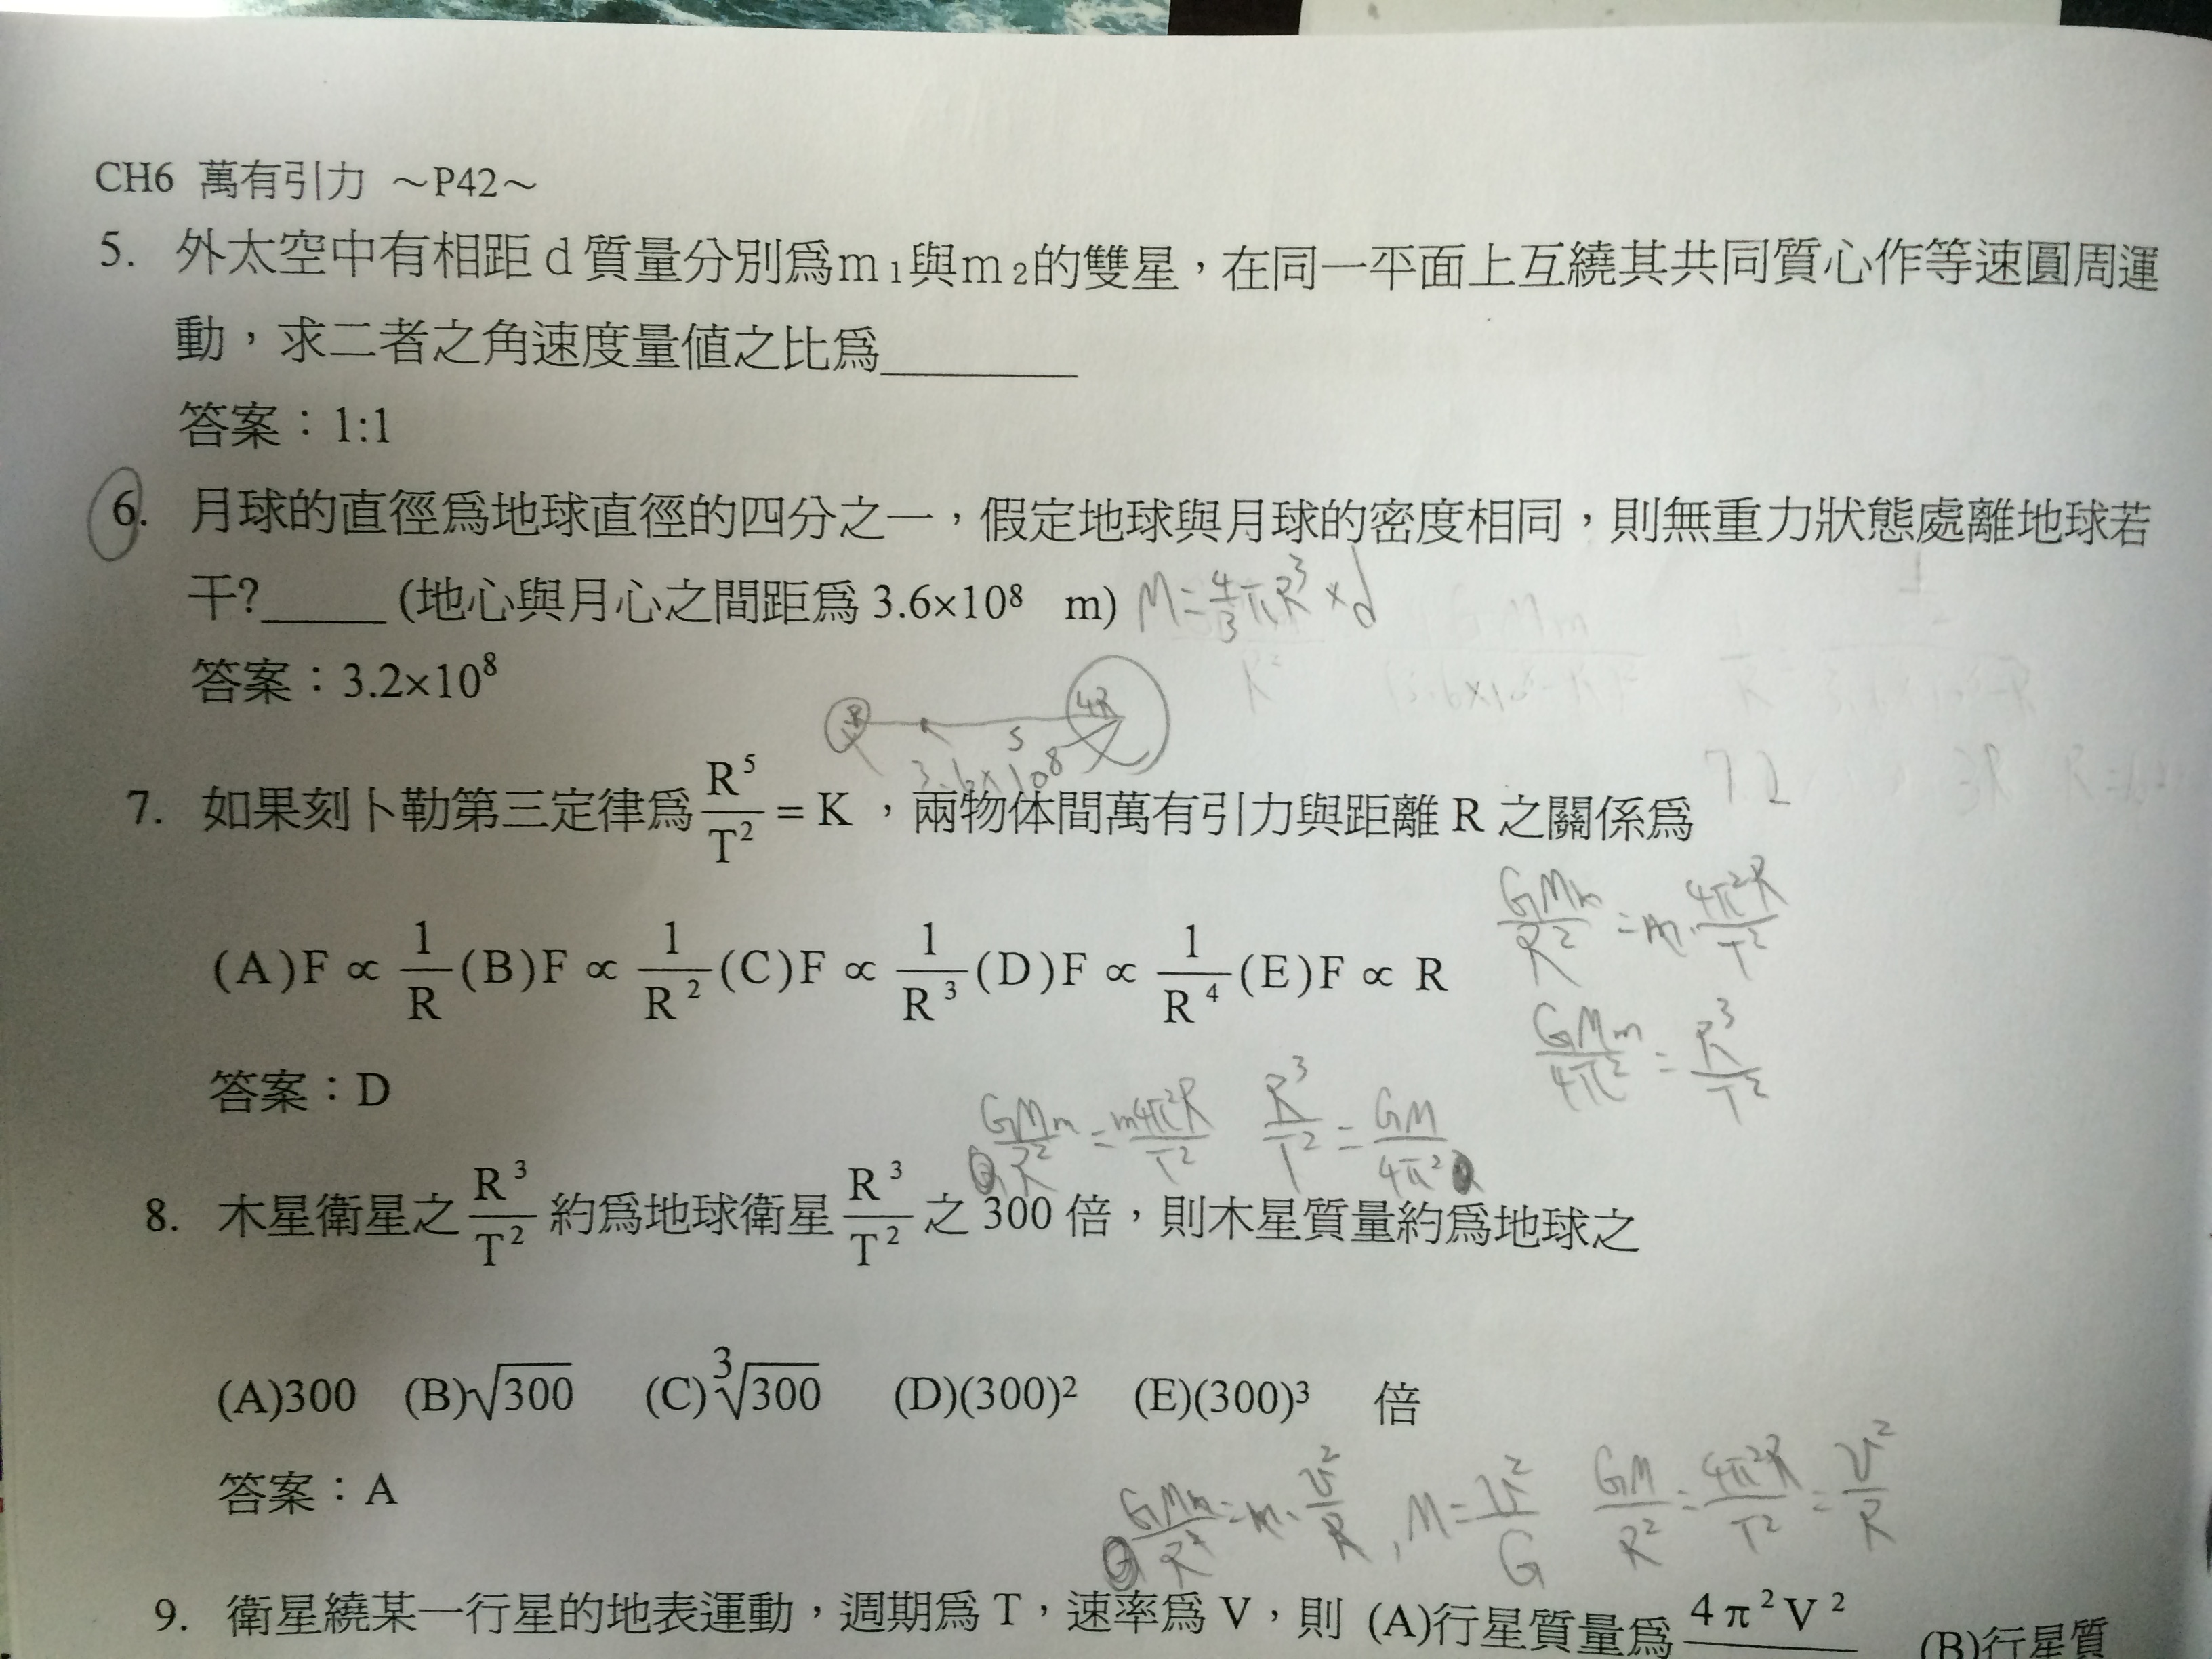 CH6 萬有引力 ～P42～
5. 外太空中有相距d質量分別為m₁與m₂的雙星，在同一平面上互繞其共同質心作等速圓周運
動，求二者之角速度量值之比為________
答案：1:1
6. 月球的直徑為地球直徑的四分之一，假定地球與月球的密度相同，則無重力狀態處離地球若
干?_____ (地心與月心之間距為 3.6×10⁸ m) M=4/3πR³×d
答案：3.2×10⁸
R 4R
S
3.6×10⁸
7. 如果刻卜勒第三定律為 R⁵/T² = K ，兩物体間萬有引力與距離 R 之關係為
GMm/R² = m·4π²R/T²
(A)F ∝ 1/R (B)F ∝ 1/R² (C)F ∝ 1/R³ (D)F ∝ 1/R⁴ (E)F ∝ R
GMm/4π² = R³/T²
答案：D
GMm/R² = m4π²R/T² R³/T² = GM/4π²
8. 木星衛星之 R³/T² 約為地球衛星 R³/T² 之 300 倍，則木星質量約為地球之
(A)300 (B)√300 (C)³√300 (D)(300)² (E)(300)³ 倍
答案：A
GMm/R² = m·v²/R , M = v²/G GM/R² = 4π²R/T² = v²/R
9. 衛星繞某一行星的地表運動，週期為 T，速率為 V，則 (A)行星質量為 4π²V² (B)行星質